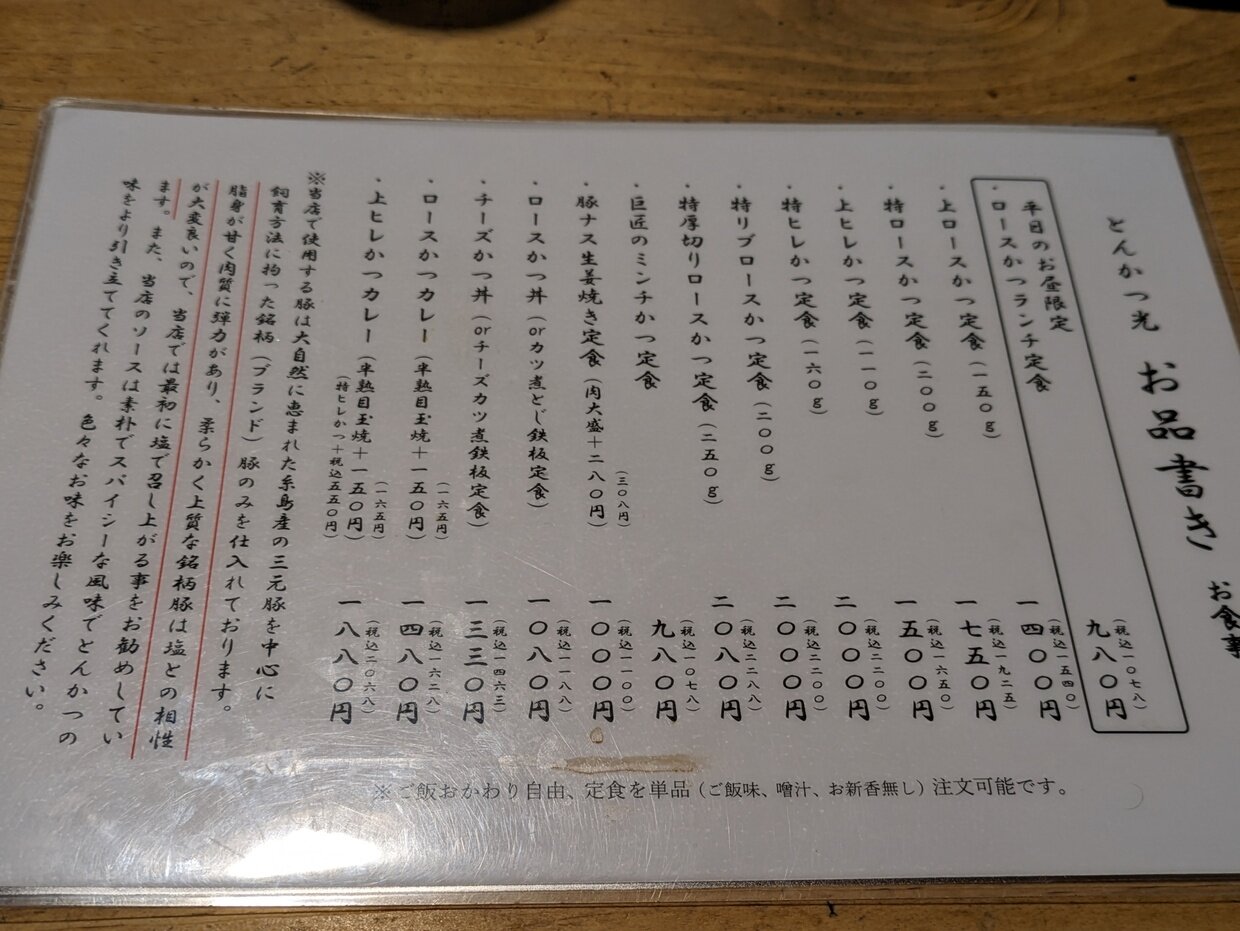 とんかつ光 お品書き お食事
平日のお昼限定
・ロースかつランチ定食 九八〇円（税込一〇七八）
・上ロースかつ定食（一五〇g） 一四〇〇円（税込一五四〇）
・特ロースかつ定食（二〇〇g） 一七五〇円（税込一九二五）
・上ヒレかつ定食（一一〇g） 一五〇〇円（税込一六五〇）
・特ヒレかつ定食（一六〇g） 二〇〇〇円（税込二二〇〇）
・特リブロースかつ定食（二〇〇g） 二〇〇〇円（税込二二〇〇）
・特厚切りロースかつ定食（二五〇g） 二〇八〇円（税込二二八八）
・巨匠のミンチかつ定食 九八〇円（税込一〇七八）
・豚ナス生姜焼き定食（肉大盛＋二八〇円）（三〇八円） 一〇〇〇円（税込一一〇〇）
・ロースかつ丼（orカツ煮とじ鉄板定食） 一〇八〇円（税込一一八八）
・チーズかつ丼（orチーズカツ煮鉄板定食） 一三三〇円（税込一四六三）
・ロースかつカレー（半熟目玉焼＋一五〇円）（一六五円） 一四八〇円（税込一六二八）
・上ヒレかつカレー（半熟目玉焼＋一五〇円）（一六五円） 一八八〇円（税込二〇六八）
（特ヒレかつ＋税込五五〇円）
※当店で使用する豚は大自然に恵まれた糸島産の三元豚を中心に
飼育方法に拘った銘柄（ブランド）豚のみを仕入れております。
脂身が甘く肉質に弾力があり、柔らかく上質な銘柄豚は塩との相性
が大変良いので、当店では最初に塩で召し上がる事をお勧めしてい
ます。また、当店のソースは素朴でスパイシーな風味でとんかつの
味をより引き立ててくれます。色々なお味をお楽しみください。
※ご飯おかわり自由、定食を単品（ご飯味、噌汁、お新香無し）注文可能です。